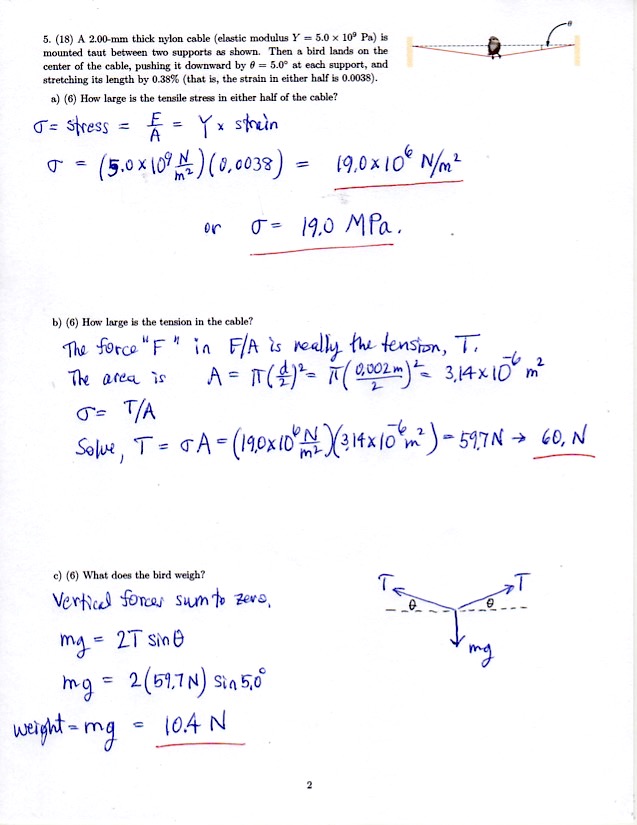 5. (18) A 2.00-mm thick nylon cable (elastic modulus Y = 5.0 × 10⁹ Pa) is
mounted taut between two supports as shown. Then a bird lands on the
center of the cable, pushing it downward by θ = 5.0° at each support, and
stretching its length by 0.38% (that is, the strain in either half is 0.0038).
θ
a) (6) How large is the tensile stress in either half of the cable?
σ = stress = F/A = Y x strain
σ = (5.0 x 10⁹ N/m²)(0.0038) = 19.0 x 10⁶ N/m²
or σ = 19.0 MPa.
b) (6) How large is the tension in the cable?
The force "F" in F/A is really the tension, T.
The area is A = π(d/2)² = π(0.002m/2)² = 3.14 x 10⁻⁶ m²
σ = T/A
Solve, T = σA = (19.0x10⁶ N/m²)(3.14 x 10⁻⁶ m²) = 59.7 N → 60. N
c) (6) What does the bird weigh?
Vertical forces sum to zero.
mg = 2T sin θ
mg = 2(59.7 N) sin 5.0°
weight = mg = 10.4 N
T T
θ θ
mg
2